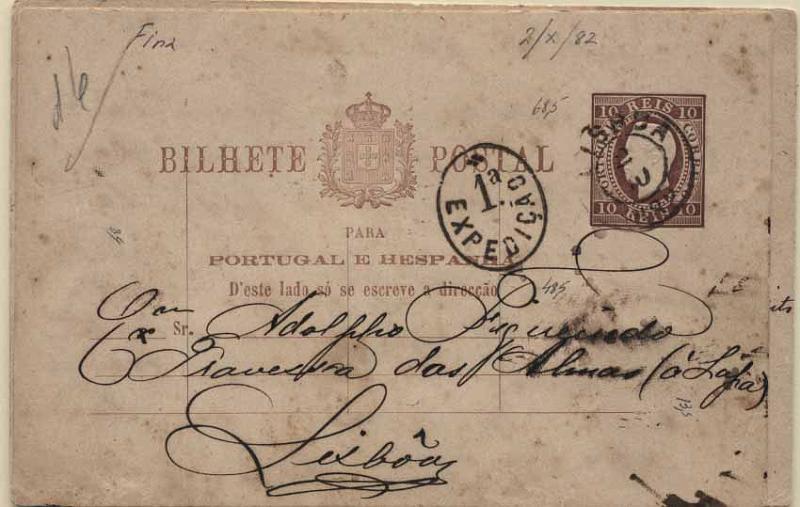 Fina
2/x/82
685
10 REIS 10
CORREIO
10 REIS 10
LISBOA
BILHETE POSTAL
1.ª EXPEDIÇÃO
PARA
PORTUGAL E HESPANHA
D'este lado só se escreve a direcção
485
Sr. Adolpho Figueiredo
Travessa das Almas (á Lapa)
Lisbôa